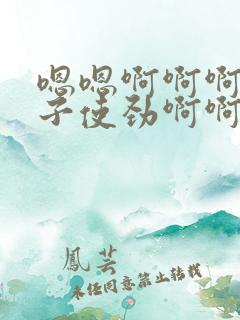 嗯嗯啊啊啊
子使劲啊啊
鳳芸
未经同意禁止转载